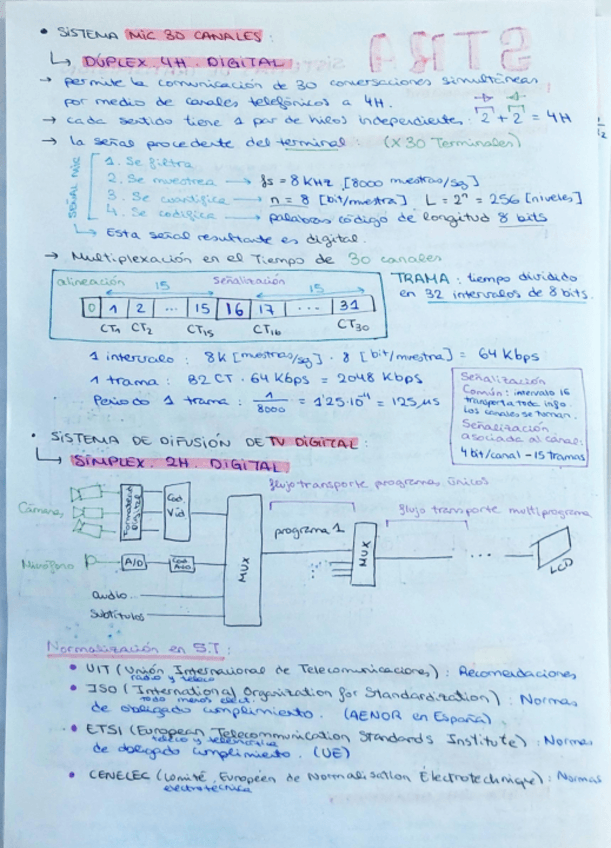 • SISTEMA MIC 30 CANALES:
↳ DÚPLEX 4H. DIGITAL
→ permite la comunicación de 30 conversaciones simultáneas,
por medio de canales telefónicos a 4H.
→ cada sentido tiene 1 par de hilos independientes: 2 + 2 = 4H
→ la señal procedente del terminal: (X30 Terminales)
SEÑAL MIC
1. Se filtra
2. Se muestrea → fs = 8 KHz [8000 muestras/sg]
3. Se cuantifica → n = 8 [bit/muestra]. L = 2ⁿ = 256 [niveles]
4. Se codifica → palabras código de longitud 8 bits
↳ Esta señal resultante es digital.
→ Multiplexación en el Tiempo de 30 canales
alineación 15 Señalización 15
0 1 2 ... 15 16 17 ... 31
CT1 CT2 CT15 CT16 CT30
TRAMA: tiempo dividido
en 32 intervalos de 8 bits.
1 intervalo: 8K [muestras/sg] · 8 [bit/muestra] = 64 Kbps
1 trama: 32 CT · 64 Kbps = 2048 Kbps
Periodo 1 trama: 1/8000 = 1'25·10⁻⁴ = 125 µs
Señalización
Común: intervalo 16
transporta toda info.
los canales se turnan.
Señalización
asociada al canal:
4 bit/canal - 15 tramas
• SISTEMA DE DIFUSIÓN DE TV DIGITAL:
↳ SIMPLEX. 2H. DIGITAL
flujo transporte programa único
flujo transporte multiprograma
Cámaras
Formateo Digital
Cod. Vid
MUX
programa 1
MUX
...
LCD
Micrófono
A/D
Cod. Aud
audio
Subtítulos
Normalización en S.T:
• UIT (Unión Internacional de Telecomunicaciones): Recomendaciones
radio y teleco
• ISO (International Organization for Standardization): Normas
todo menos elect.
de obligado cumplimiento. (AENOR en España)
• ETSI (European Telecommunication Standards Institute): Normas
de obligado cumplimiento. (UE)
• CENELEC (Comité Européen de Normalisation Électrotechnique): Normas
electrotécnica